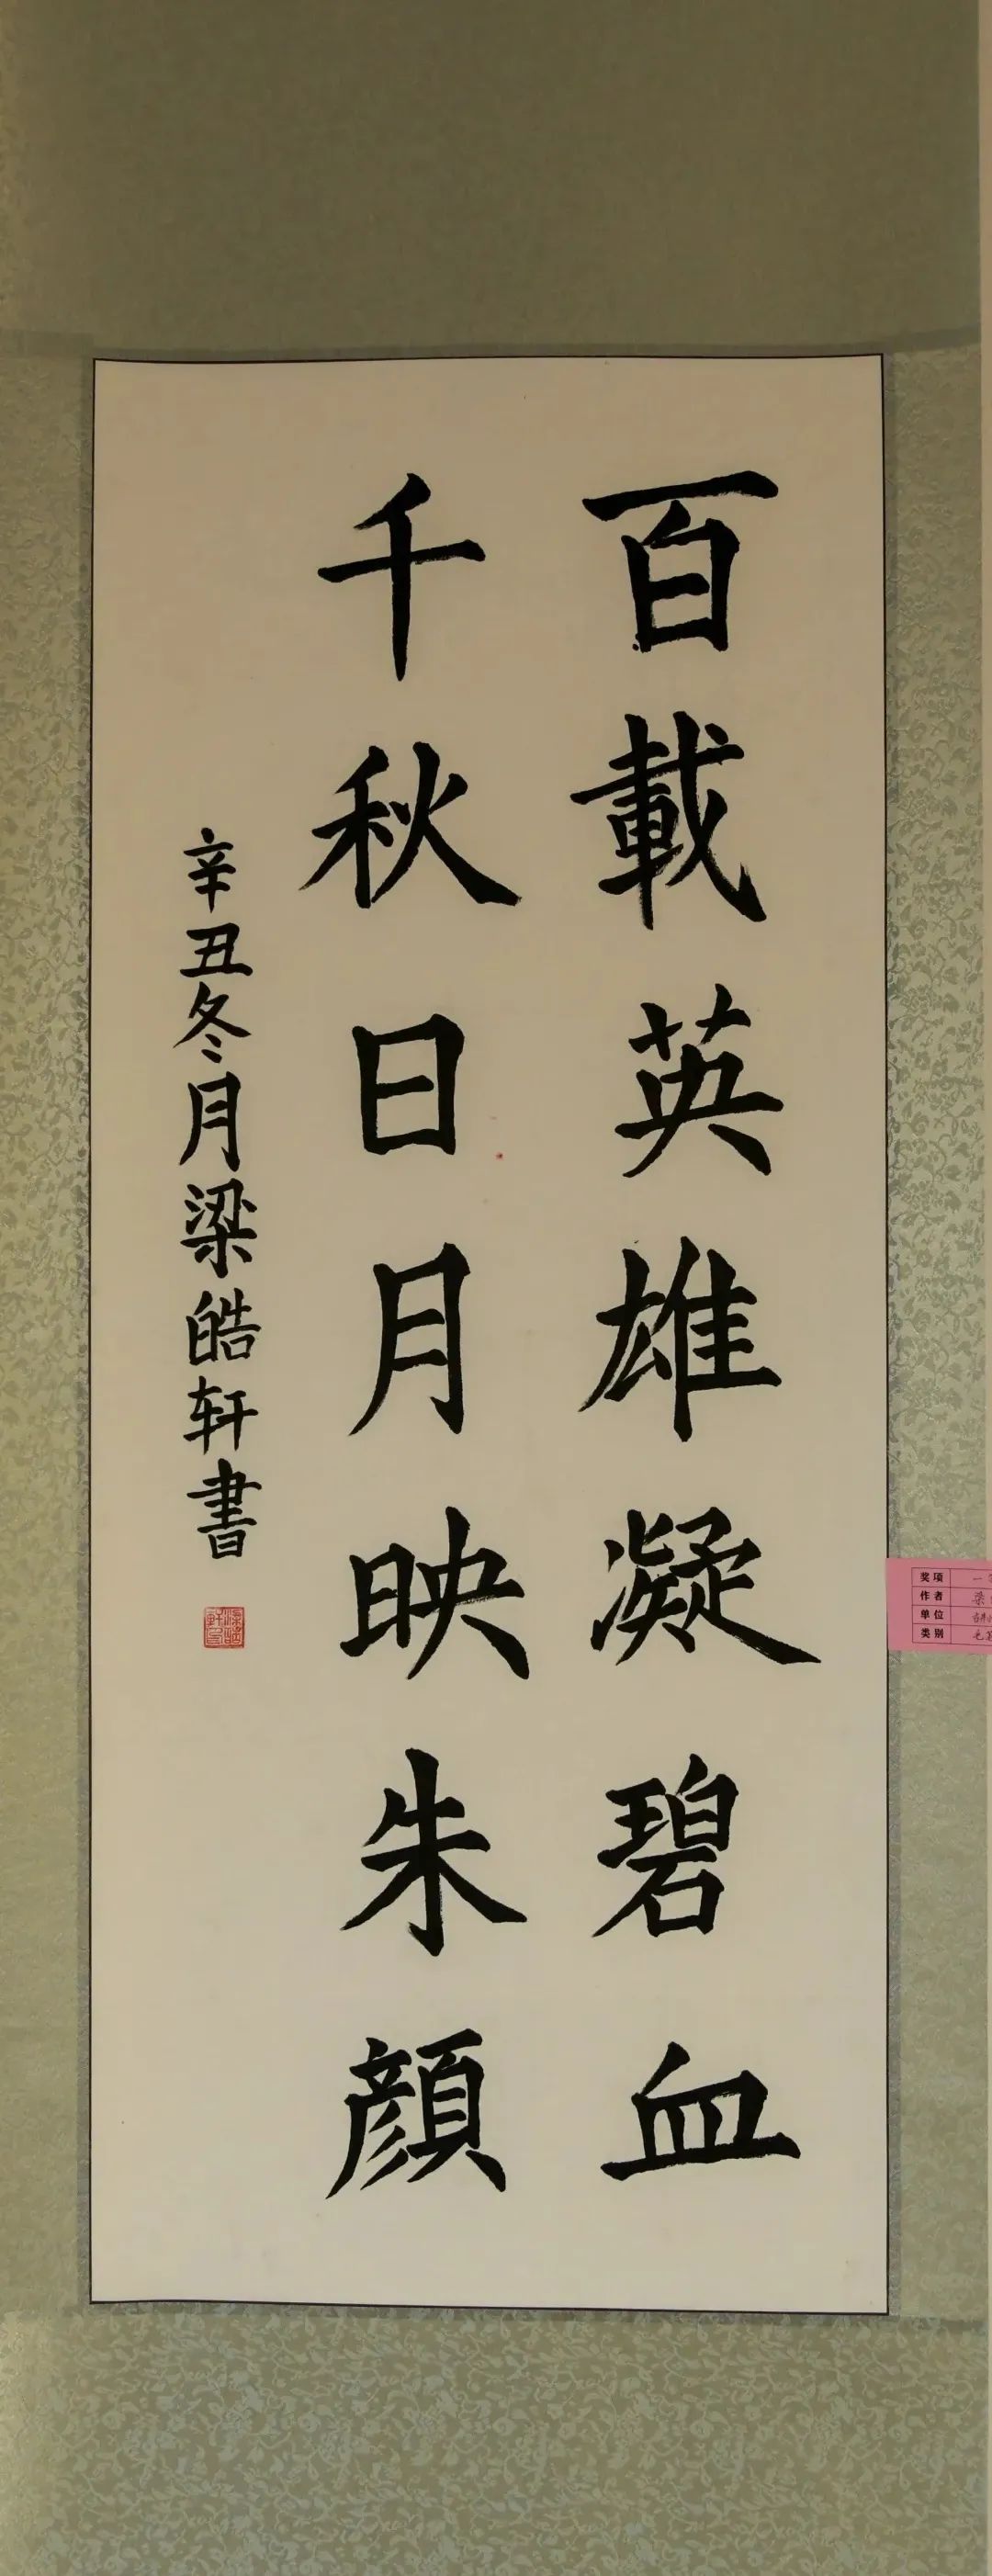 百載英雄凝碧血
千秋日月映朱顏
辛丑冬月梁皓轩書
奖项
作者 梁
单位
类别